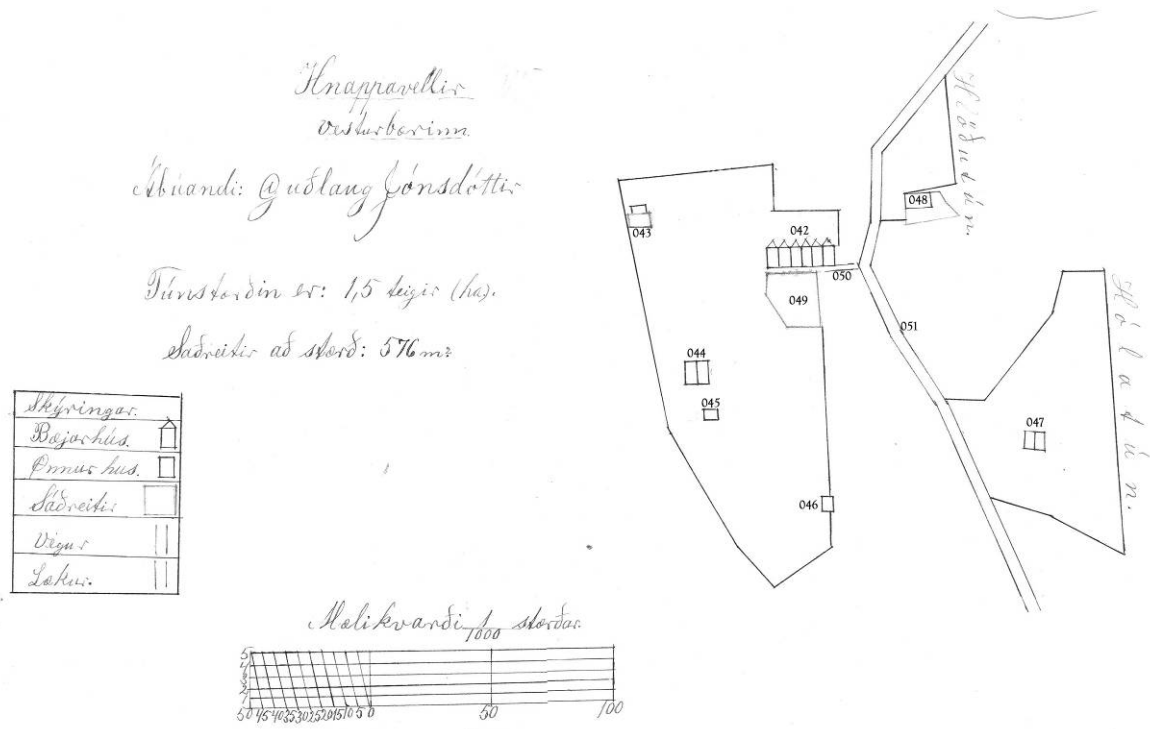 Hnappavellir
Vesturbærinn.
Ábúandi: Guðlaug Jónsdóttir
Túnstærðin er: 1,5 teigir (ha).
Sáðreitir að stærð: 576 m²
Skýringar.
Bæjarhús.
Önnur hús.
Sáðreitir
Vegur
Lækur.
Mælikvarði 1/1000 stærðar.
5
4
3
2
1
50 45 40 35 30 25 20 15 10 5 0 50 100
Höðutún.
Hólatún.
042
043
044
045
046
047
048
049
050
051